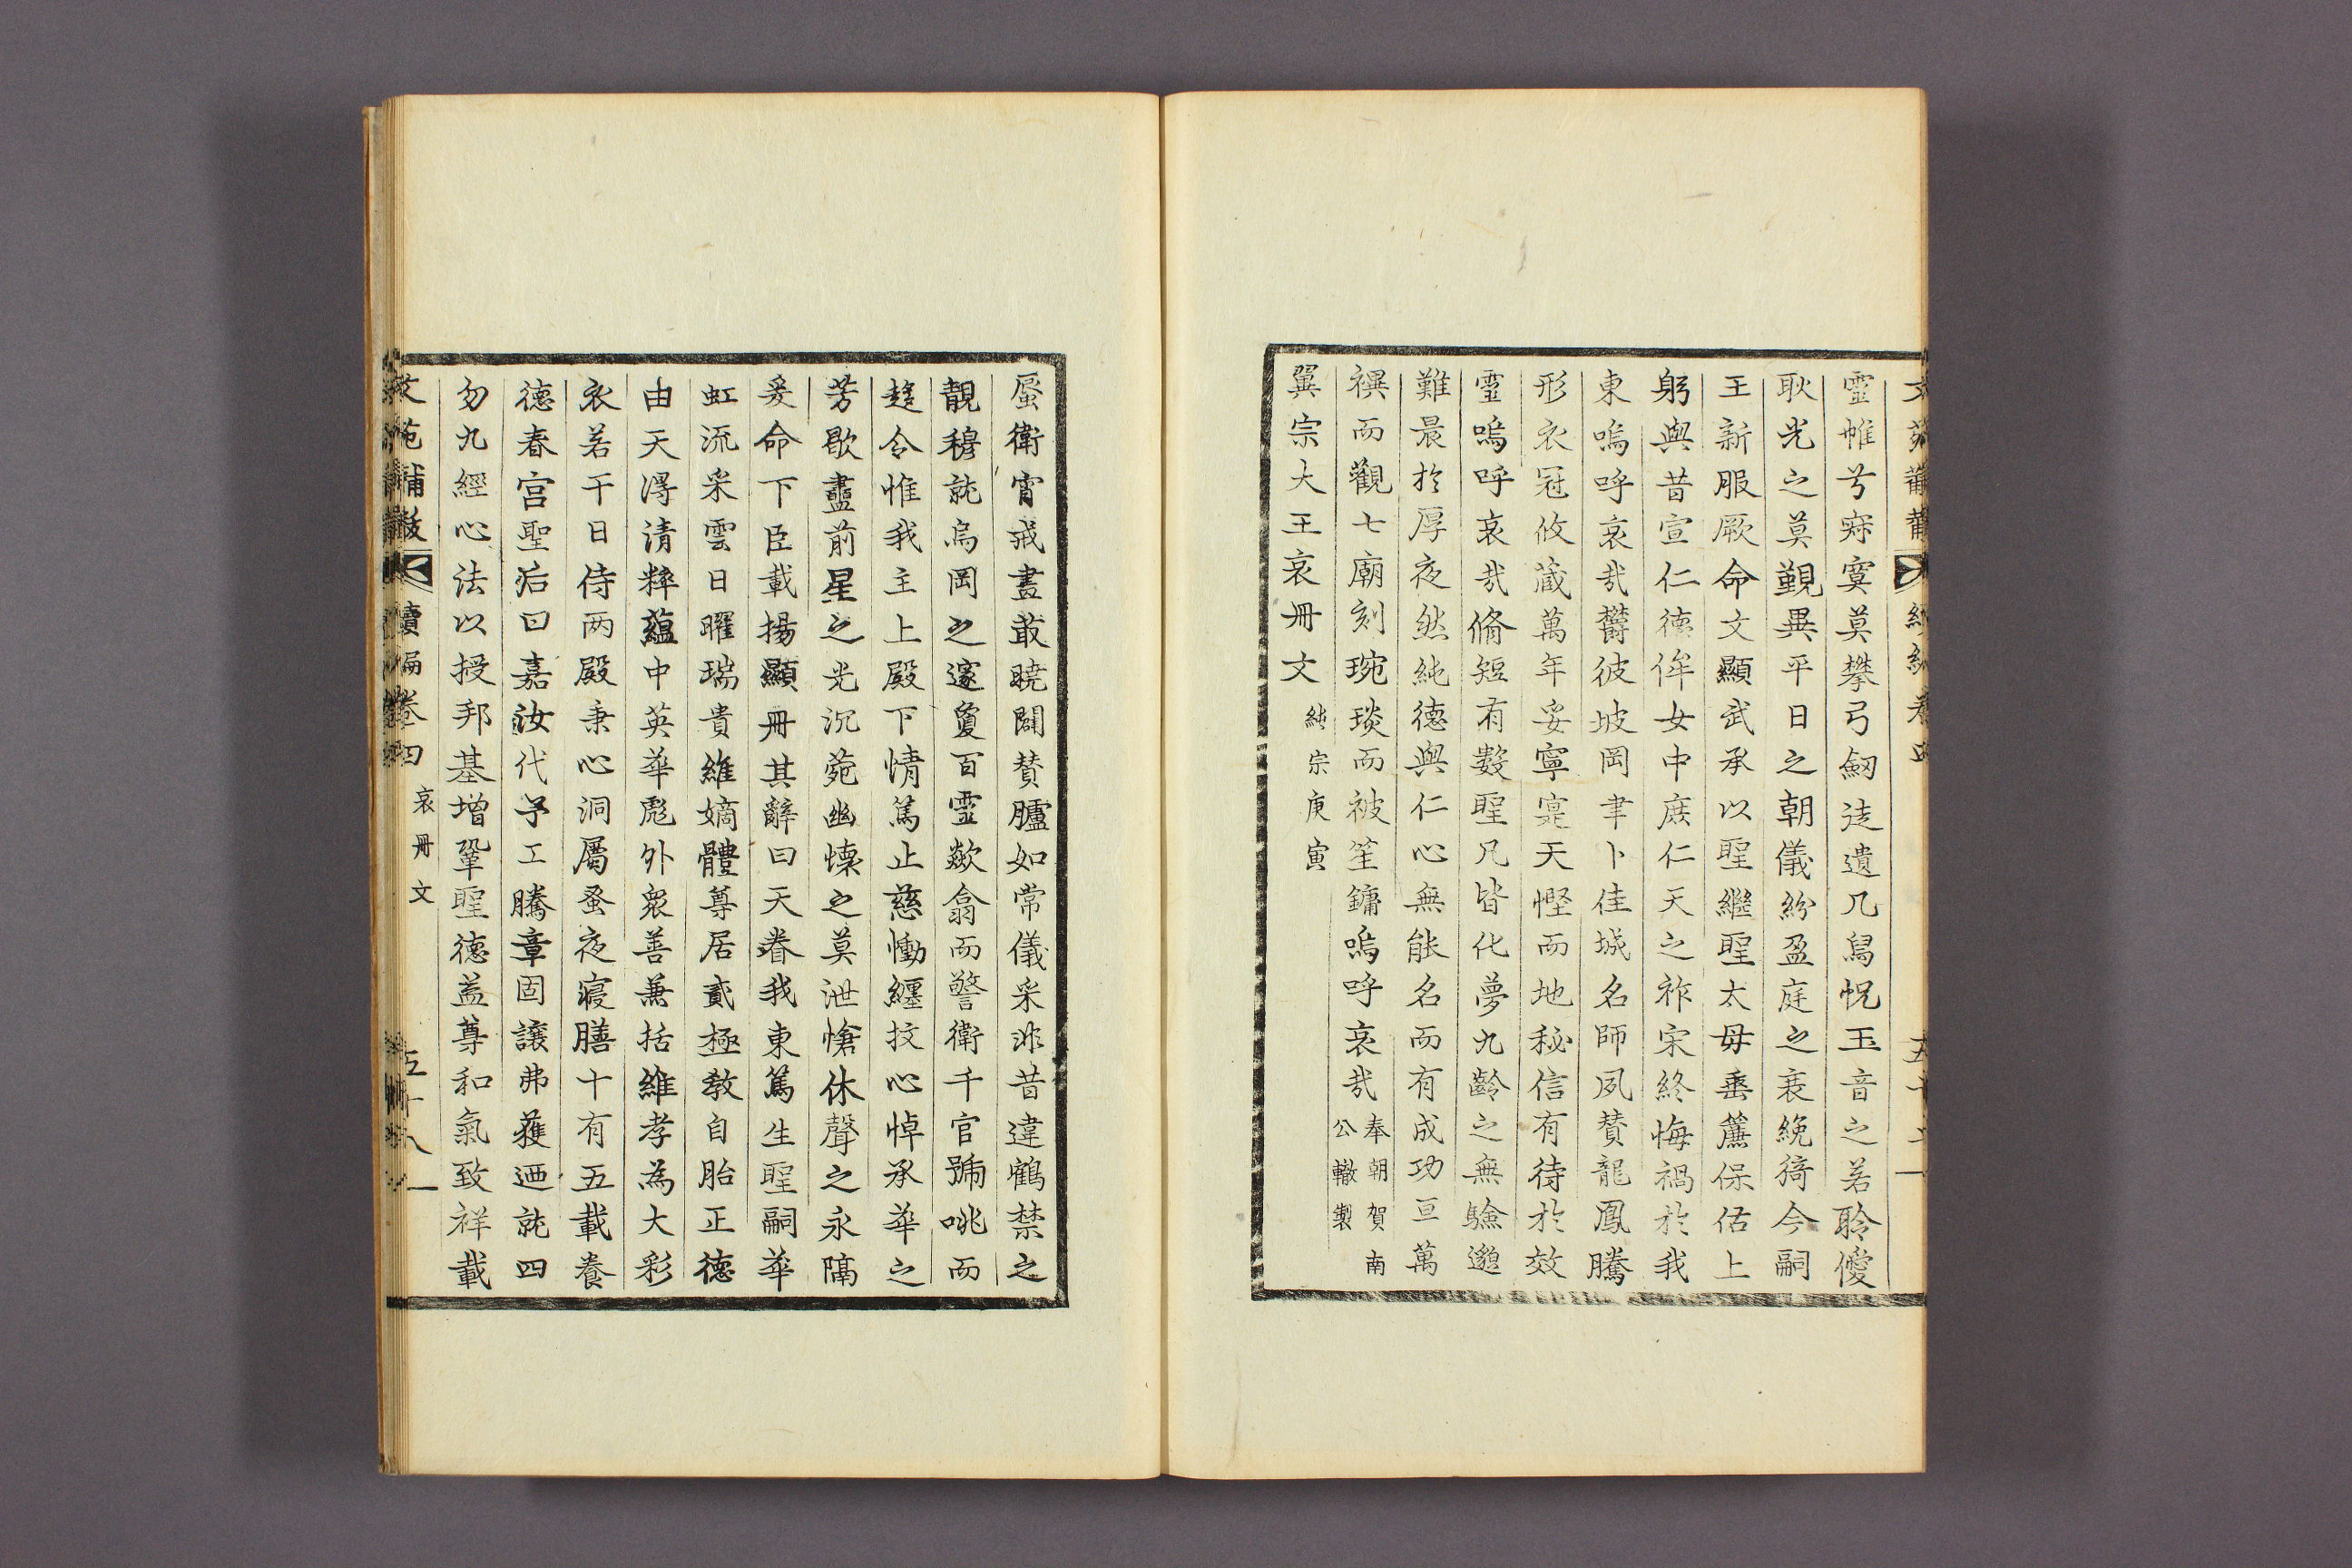 靈帷兮寂寞莫攀弓劒徒遺几舃怳玉音之若聆僾
耿光之莫覿異平日之朝儀紛盈庭之衰絻猗今嗣
王新服厥命文顯武承以聖繼聖太母垂簾保佑上
躬與昔宣仁德侔女中庶仁天之祚宋終悔禍於我
東嗚呼哀哉欝彼坡岡聿卜佳城名師夙賛龍鳳騰
形衣冠攸藏萬年妥寧寔天慳而地秘信有待於效
靈嗚呼哀哉脩短有數聖凡皆化夢九齡之無驗邈
難晨於厚夜然純德與仁心無能名而有成功亘萬
禩而觀七廟刻琬琰而被笙鏞嗚呼哀哉奉朝賀南
公轍製
翼宗大王哀冊文純宗庚寅
蜃衛宵戒晝菆曉闢賛臚如常儀采非昔違鶴禁之
靚穆就烏岡之邃敻百靈歘翕而警衛千官號咷而
趍令惟我主上殿下情篤止慈慟纒抆心悼承華之
芳歇盡前星之光沉菀幽懐之莫泄愴休聲之永隔
爰命下臣載揚顯冊其辭曰天眷我東篤生聖嗣華
虹流采雲日曜瑞貴維嫡體尊居貳極敎自胎正德
由天得清粹蘊中英華彪外衆善兼括維孝為大彩
衣若干日侍两殿秉心洞屬蚤夜寢膳十有五載養
德春宮聖后曰嘉汝代予工騰章固讓弗獲迺就四
勿九經心法以授邦基增鞏聖德益尊和氣致祥載
文苑黼黻 續編卷四 哀冊文 五十八